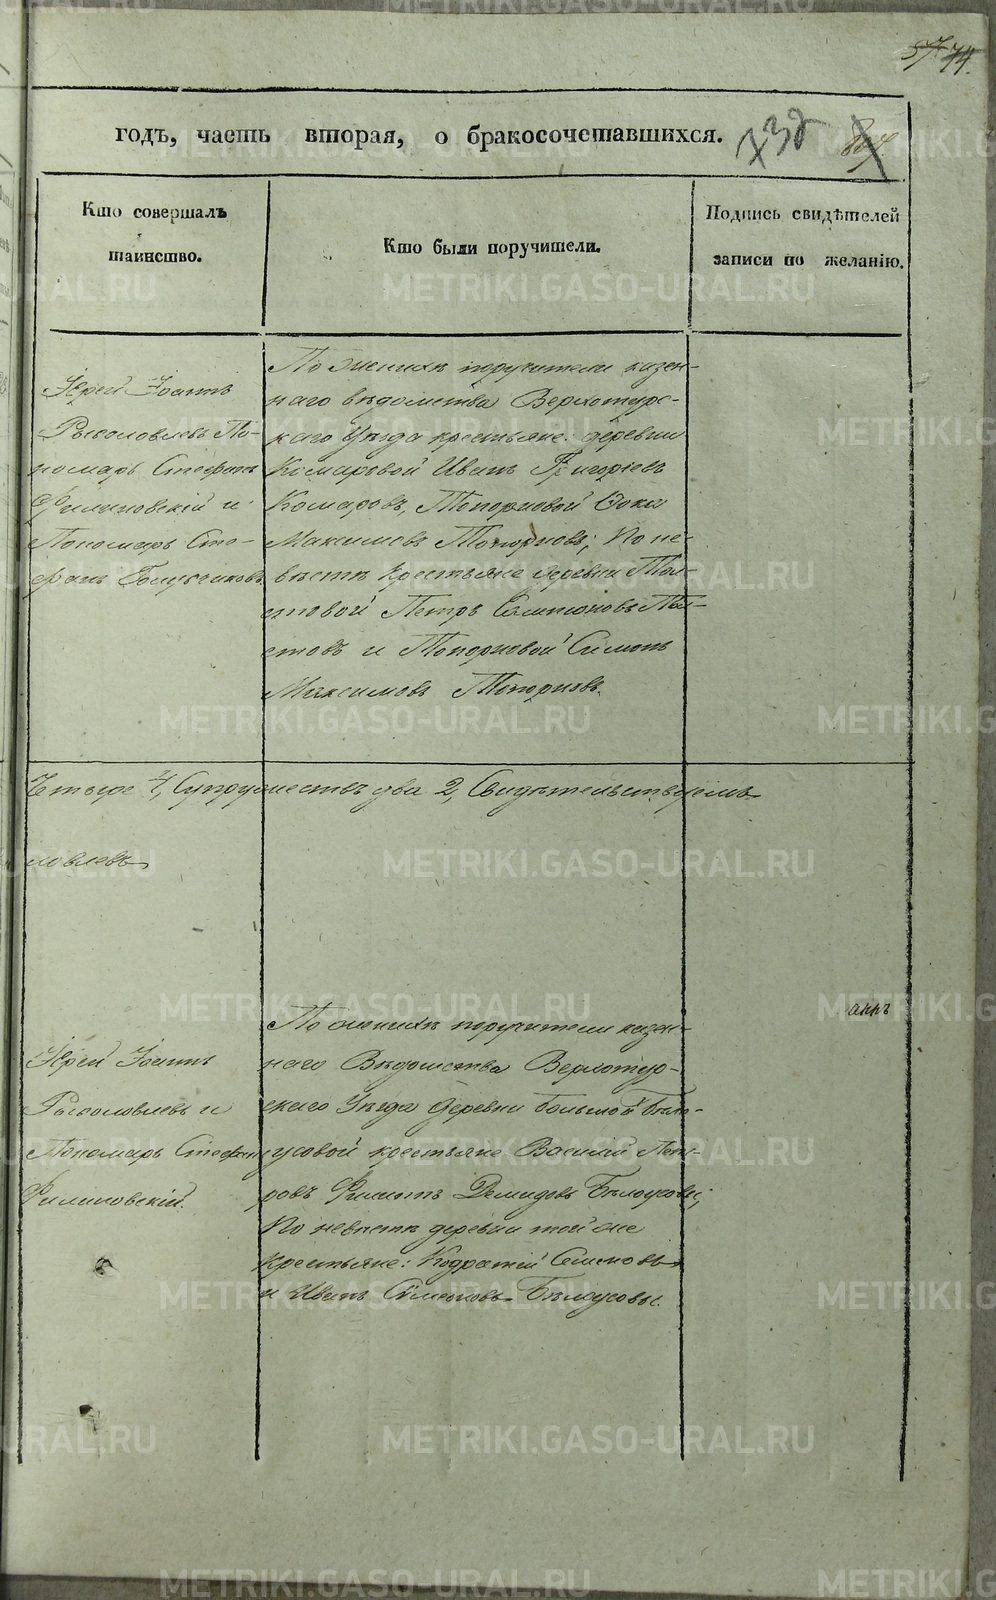 74.
годъ, часть вторая, о бракосочетавшихся. 732
Кто совершалъ
таинство.
Кто были поручители.
Подпись свидѣтелей
записи по желанію.
Іерей Іоаннъ
Рыболовлевъ По-
номарь Стефанъ
Филиновскій и
Пономарь Сте-
фанъ
По женихѣ поручители казен-
наго вѣдомства Верхотурс-
каго Уѣзда крестьяне: деревни
Комаровой Иванъ Григорьевъ
Комаровъ, Топорковой Фока
Максимовъ Топорковъ; По не-
вѣстѣ крестьяне деревни Тол-
стовой Петръ Тол-
стовъ и Топорковой Симонъ
Максимовъ Топорковъ.
Четыре 4, Супружествъ два 2, Свидѣтельствуемъ
ловлевъ
Іерей Іоаннъ
Рыболовлевъ и
Пономарь Стефанъ
Филиновскій.
По женихѣ поручители казен-
наго Вѣдомства Верхотур-
скаго Уѣзда деревни Большой Бѣло-
усовой крестьяне Василій Пет-
ровъ Филиппъ Демидовъ Бѣлоусовы;
По невѣстѣ деревни той же
крестьяне: Кодратій Семеновъ
и Иванъ Симеоновъ Бѣлоусовы.
аннъ
METRIKI.GASO-URAL.RU